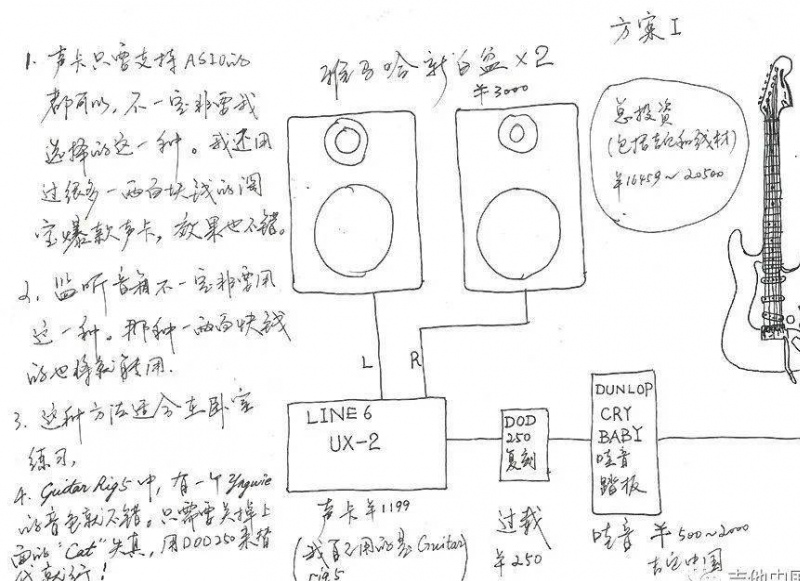 方案I
1. 声卡只需支持ASIO的
都可以,不一定非要我
选择的这一种。我还用
过很多一两百块钱的淘
宝爆款声卡,效果也不错。
2. 监听音箱不一定非要用
这一种。那种一两百块钱
的也将就能用.
3. 这种方法适合在卧室
练习,
4. Guitar Rig5中,有一个Yngwie
的音色就不错。只需要关掉上
面的“Cat”失真,用DOD250来替
代就行!
雅马哈新白盆×2
¥3000
总投资
(包括吉他和线材)
¥16459~20500
L
R
LINE 6
UX-2
声卡¥1199
(我自己用的是Guitar
rig5
DOD
250
复刻
过载
¥250
DUNLOP
CRY
BABY
哇音
踏板
哇音 ¥500~2000
吉他中国